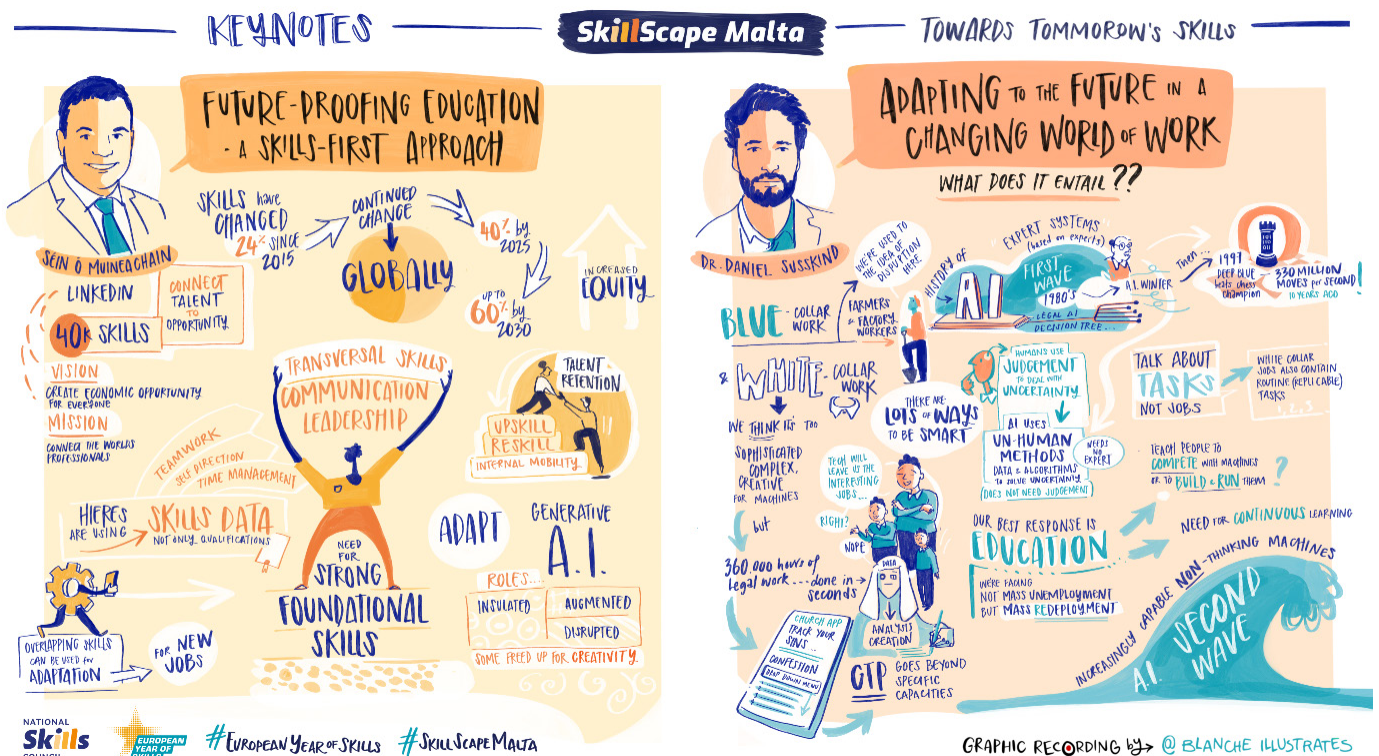 KEYNOTES
SkillScape Malta
TOWARDS TOMMOROW'S SKILLS
FUTURE-PROOFING EDUCATION
- A SKILLS-FIRST APPROACH
SÉIN Ó MUINEACHAIN
LINKEDIN
40K SKILLS
CONNECT
TALENT
TO
OPPORTUNITY
VISION
CREATE ECONOMIC OPPORTUNITY
FOR EVERYONE
MISSION
CONNECT THE WORLDS
PROFESSIONALS
SKILLS have
CHANGED
24% SINCE
2015
CONTINUED
CHANGE
GLOBALLY
40% by
2025
UP TO
60% by
2030
INCREASED
EQUITY
TRANSVERSAL SKILLS
COMMUNICATION
LEADERSHIP
TEAMWORK
SELF DIRECTION
TIME MANAGEMENT
HIERES
ARE USING
SKILLS DATA
NOT ONLY QUALIFICATIONS
NEED
FOR
STRONG
FOUNDATIONAL
SKILLS
TALENT
RETENTION
UPSKILL
RESKILL
INTERNAL MOBILITY
ADAPT
GENERATIVE
A.I.
ROLES....
INSULATED
AUGMENTED
DISRUPTED
SOME FREED UP FOR CREATIVITY.
OVERLAPPING SKILLS
CAN BE USED for
ADAPTATION
FOR NEW
JOBS
NATIONAL
Skills
COUNCIL
EUROPEAN
YEAR OF
SKILLS
#EUROPEAN YEAR OF SKILLS
#SKILLSCAPEMALTA
ADAPTING TO THE FUTURE IN A
CHANGING WORLD OF WORK
WHAT DOES IT ENTAIL??
DR. DANIEL SUSSKIND
BLUE-COLLAR
WORK
WE'RE USED TO
THE IDEA OF
DISRUPTION
HERE
FARMERS
& FACTORY
WORKERS
& WHITE-COLLAR
WORK
WE THINK ITS TOO
SOPHISTICATED
COMPLEX,
CREATIVE
FOR MACHINES
but
360,000 hours of
legal work...done in
seconds
HISTORY OF
AI
EXPERT SYSTEMS
(based on experts)
FIRST
WAVE
1980's
LEGAL AI
DECISION TREE...
A.I. WINTER
Then...
1997
DEEP BLUE
beats chess
champion
330 MILLION
MOVES per SECOND!
10 YEARS AGO
THERE ARE
LOTS OF WAYS
TO BE SMART
HUMANS USE
JUDGEMENT
TO DEAL WITH
UNCERTAINTY
AI USES
UN-HUMAN
METHODS
DATA & ALGORITHMS
TO SOLVE UNCERTAINTY
(DOES NOT NEED JUDGEMENT)
NEEDS
NO
EXPERT
TALK ABOUT
TASKS
NOT JOBS
WHITE COLLAR
JOBS ALSO CONTAIN
ROUTINE (REPLICABLE)
TASKS
1, 2, 3
TECH WILL
LEAVE US THE
INTERESTING
JOBS...
RIGHT?
NOPE
DATA
ANALYSIS
CREATION
TEACH PEOPLE TO
COMPETE WITH MACHINES
OR TO BUILD & RUN THEM ?
OUR BEST RESPONSE IS
EDUCATION
NEED FOR CONTINUOUS LEARNING
WE'RE FACING
NOT MASS UNEMPLOYMENT
BUT MASS REDEPLOYMENT
CHURCH APP
TRACK YOUR
SINS...
CONFESSION
DROP DOWN MENU
GTP GOES BEYOND
SPECIFIC
CAPACITIES
INCREASINGLY CAPABLE NON-THINKING MACHINES
A.I. SECOND
WAVE
GRAPHIC RECORDING by @ BLANCHE ILLUSTRATES